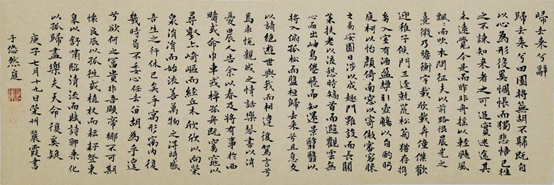 歸去來兮辭
歸去來兮田園將蕪胡不歸既自
以心為形役奚惆悵而獨悲悟已往
之不諫知來者之可追實迷途其
未遠覺今是而昨非舟搖以輕颺風
飄飄而吹衣問征夫以前路恨晨光之
熹微乃瞻衡宇載欣載奔僮僕歡
迎稚子候門三逕就荒松菊猶存攜
幼入室有酒盈樽引壺觴以自酌眄
庭柯以怡顏倚南窗以寄傲審容膝
之易安園日涉以成趣門雖設而長關
策扶老以流憩時矯首而遐觀雲無
心而出岫鳥倦飛而知還景翳翳以
將入撫孤松而盤桓歸去來兮且息交
以請絕遊世與我而相違復駕言兮
焉求悅親戚之情話樂琴書以消
憂農人告余以春及將有事於西
疇或命巾車或棹孤舟既窈窕以
尋壑亦崎嶇而經丘木欣欣以向榮
泉涓涓而始流善萬物之得時感
吾生之行休已矣乎寓形宇內復
幾時曷不委心任去留胡為乎遑遑
兮欲何之富貴非吾願帝鄉不可期
懷良辰以孤往或植杖而耘耔登東
皋以舒嘯臨清流而賦詩聊乘化
以歸盡樂夫天命復奚疑
庚子七月十九日榮州霞書
于悠然庭